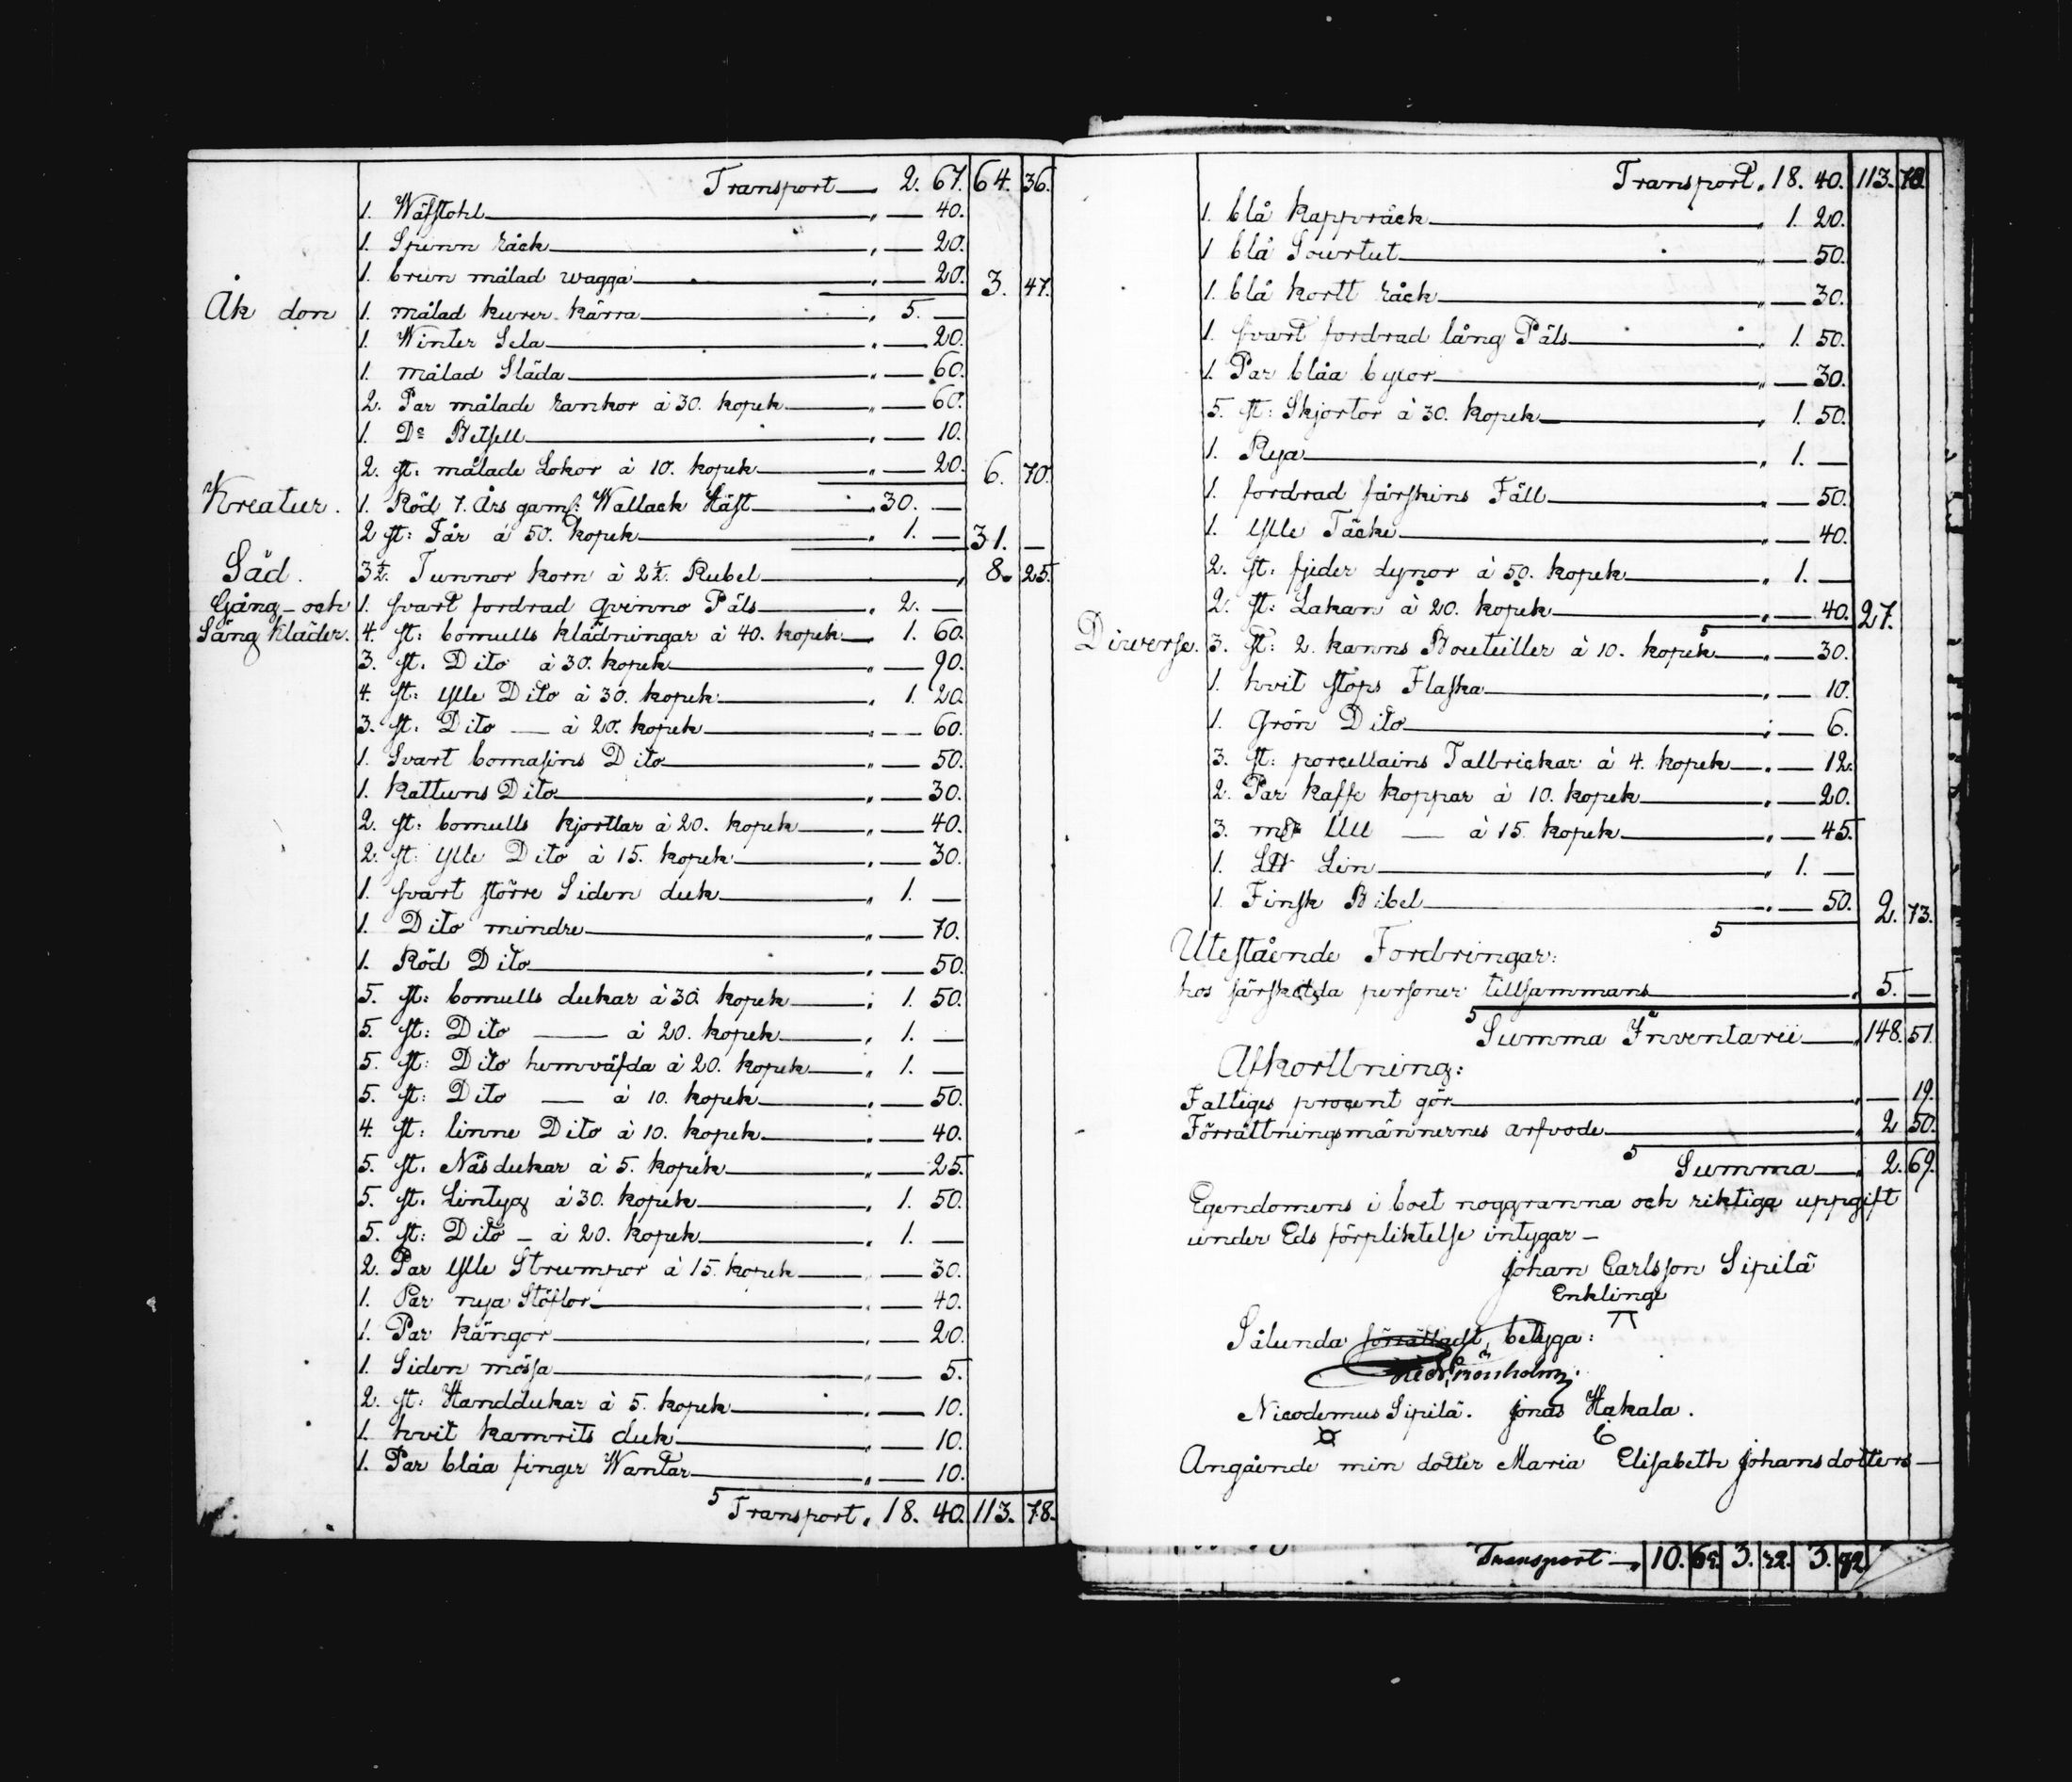 Transport 2. 67. 64. 36.
1. Wäfstohl — 40.
1. Spinn råck — 20.
1. brun målad wagga — 20. 3. 47.
Åk don 1. målad kurer kärra 5. —
1. Winter Sela — 20.
1. målad Släda — 60.
2. Par målade rankor à 30. kopek — 60.
1. Do Betsell — 10.
2. st. målade Lokor à 10. kopek — 20. 6. 70.
Kreatur. 1. Röd 7. Års gaml: Wallack Häst 30. —
2 st: Får à 50. kopek 1. — 31. —
Säd. 3½. Tunnor korn à 2½. Rubel 8. 25.
Gång- och 1. svart fordrad qvinno Päls 2. —
Säng kläder. 4. st: bomulls klädningar à 40. kopek 1. 60.
3. st. Dito à 30. kopek — 90.
4. st: ylle Dito à 30. kopek 1. 20.
3. st. Dito — à 20. kopek — 60.
1. Svart bomasins Dito — 50.
1. Kattuns Dito — 30.
2. st: bomulls kjortlar à 20. kopek — 40.
2. st: ylle Dito à 15. kopek — 30.
1. svart större Siden duk 1. —
1. Dito mindre — 70.
1. Röd Dito — 50.
5. st: bomulls dukar à 30. kopek 1. 50.
5. st: Dito — à 20. kopek 1. —
5. st: Dito hemväfda à 20. kopek 1. —
5. st: Dito — à 10. kopek — 50.
4. st: linne Dito à 10. kopek — 40.
5. st. Näsdukar à 5. kopek — 25.
5. st. Lintyg à 30. kopek 1. 50.
5. st: Dito — à 20. kopek 1. —
2. Par ylle Strumpor à 15. kopek — 30.
1. Par nya Stöflor — 40.
1. Par kängor — 20.
1. Siden mössa — 5.
2. st: Handdukar à 5. kopek — 10.
1. hvit kamrits duk — 10.
1. Par blåa finger Wantar — 10.
Transport 18. 40. 113. 78.
Transport 18. 40. 113. 78.
1. blå kappråck 1. 20.
1 blå Sourtut — 50.
1. blå kortt råck — 30.
1. svart fordrad lång Päls 1. 50.
1. Par blåa byxor — 30.
5. st: Skjortor à 30. kopek 1. 50.
1. Rya 1. —
1. fordrad fårskins Fäll — 50.
1. ylle Täcke — 40.
2. st: fjeder dynor à 50. kopek 1. —
2. st: Lakan à 20. kopek — 40. 27.
Diverse. 3. st: 2. kanns Bouteiller à 10. kopek — 30.
1. hvit stops Flaska — 10.
1. Grön Dito — 6.
3. st: porcellains Tallrickar à 4. kopek — 12.
2. Par kaffe koppar à 10. kopek — 20.
3. Ull — à 15. kopek — 45.
1. Lin 1. —
1. Finsk Bibel — 50. 2. 73.
Utestående Fordringar:
hos särskilda personer tillsammans 5. —
Summa Inventarii 148. 51.
Afkorttning:
Fattiges procent gör — 19.
Förrättningsmännernes arfvode 2 50.
Summa 2. 69.
Egendomens i boet noggranna och riktiga uppgift
under Eds förpliktelse intygar —
Johan Carlsson Sipilä
Enkling
Sålunda förrättadt, betyga:
Nicodemus Sipilä. Jonas Hakala.
Angående min dotter Maria Elisabeth Johansdotters —
Transport 10. 3. 3.